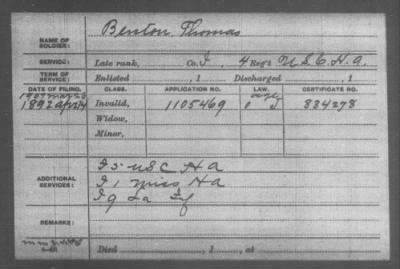 NAME OF SOLDIER: Benton, Thomas
SERVICE: Late rank, Co. I, 4 Reg't U.S.C.H.A.
TERM OF SERVICE: Enlisted , 1 Discharged , 1
DATE OF FILING. CLASS. APPLICATION NO. LAW. CERTIFICATE NO.
1892 Invalid, 1105469 884278
Widow,
Minor,
ADDITIONAL SERVICES: I 5 USC HA
I 1 Miss HA
I 9 La Inf
REMARKS:
Died , 1 , at